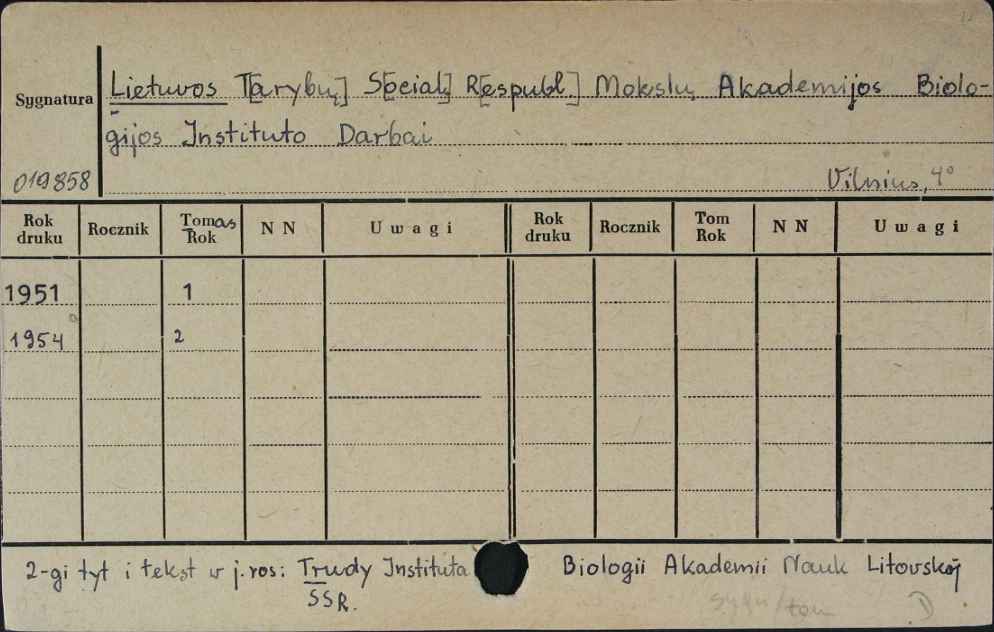 Lietuvos T[arybų] S[ocial] R[espubl] Mokslų Akademijos Biolo-
Sygnatura
gijos Instituto Darbai
019858
Vilnius, 4°
Rok druku Rocznik Tomas Rok N N Uwagi Rok druku Rocznik Tom Rok N N Uwagi
1951 1
1954 2
2-gi tyt i tekst w j. ros: Trudy Instituta Biologii Akademii Nauk Litovskoj
SSR.
sygn/tom